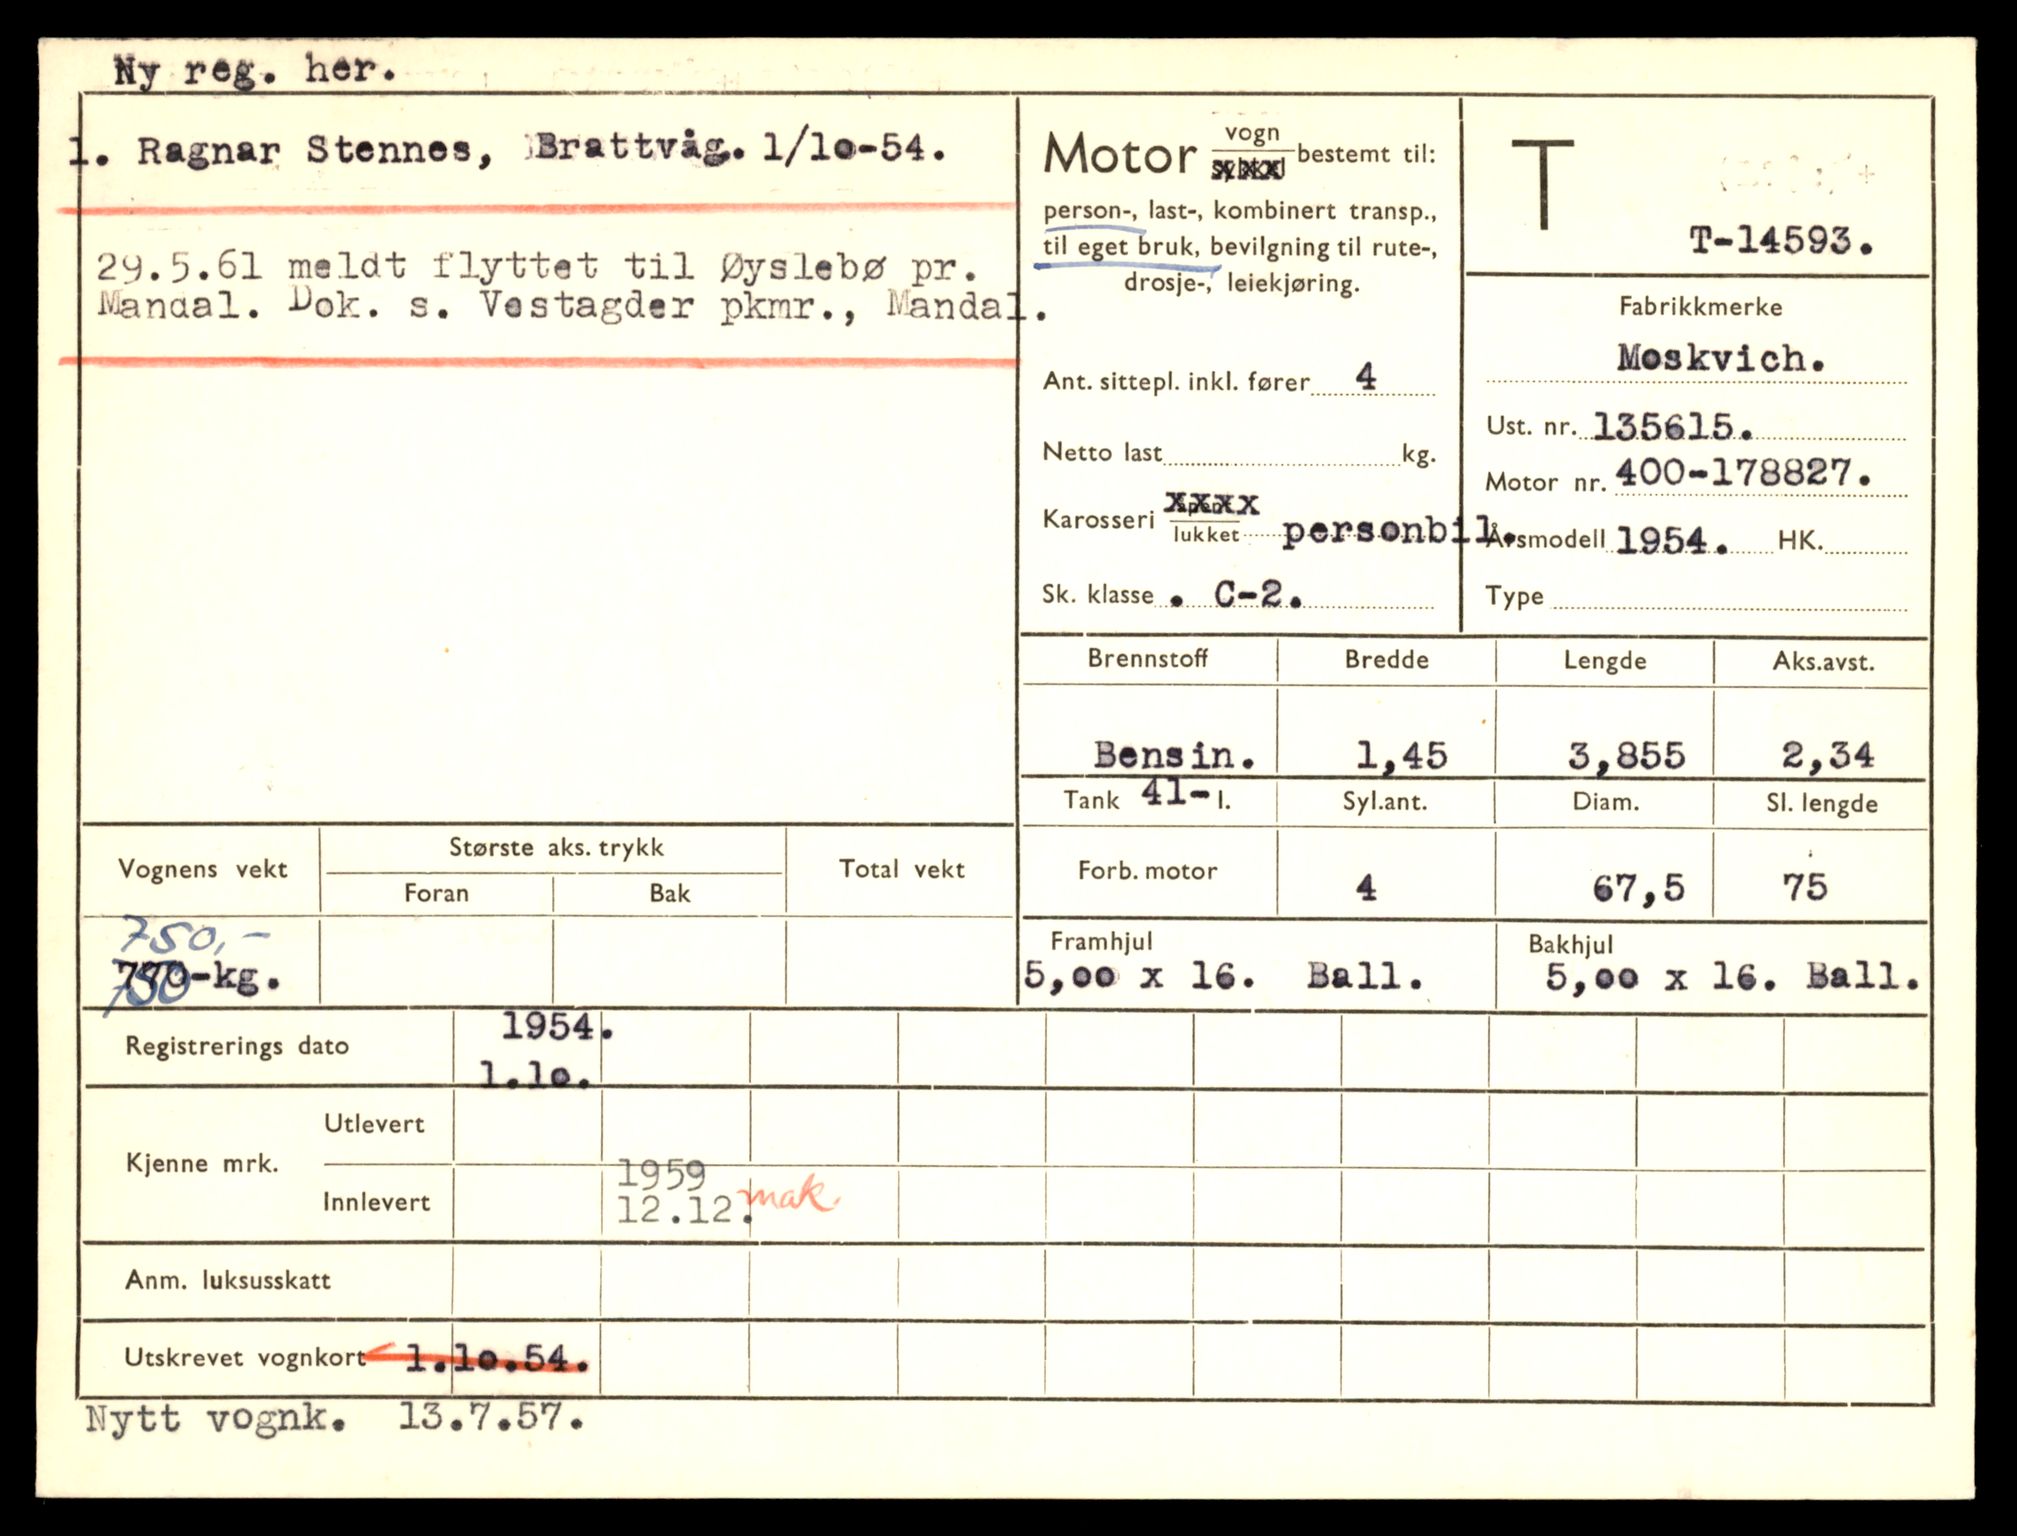 Ny reg. her.
1. Ragnar Stennes, Brattvåg. 1/10-54.
29.5.61 meldt flyttet til Øyslebø pr.
Mandal. Dok. s. Vestagder pkmr., Mandal.
Motor vogn bestemt til:
person-, last-, kombinert transp.,
til eget bruk, bevilgning til rute-,
drosje-, leiekjøring.
Ant. sittepl. inkl. fører 4
Netto last kg.
Karosseri lukket personbil.
Sk. klasse . C-2.
T
T-14593.
Fabrikkmerke
Moskvich.
Ust. nr. 135615.
Motor nr. 400-178827.
Årsmodell 1954. HK.
Type
Brennstoff Bredde Lengde Aks.avst.
Bensin. 1,45 3,855 2,34
Tank 41- l. Syl.ant. Diam. Sl. lengde
Forb. motor 4 67,5 75
Framhjul Bakhjul
5,00 x 16. Ball. 5,00 x 16. Ball.
Vognens vekt Største aks. trykk Total vekt
Foran Bak
750,-
750-kg.
Registrerings dato 1954.
1.10.
Kjenne mrk.
Utlevert
Innlevert 1959
12.12. mak.
Anm. luksusskatt
Utskrevet vognkort 1.10.54.
Nytt vognk. 13.7.57.